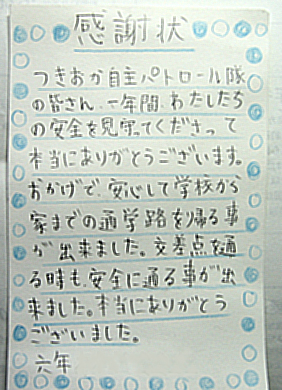 感謝状
つきおか自主パトロール隊
の皆さん、一年間、わたしたち
の安全を見守ってくださって
本当にありがとうございます。
おかげで、安心して学校から
家までの通学路を帰る事
が出来ました。交差点を通
る時も、安全に通る事が出
来ました。本当にありがとう
ございました。
六年